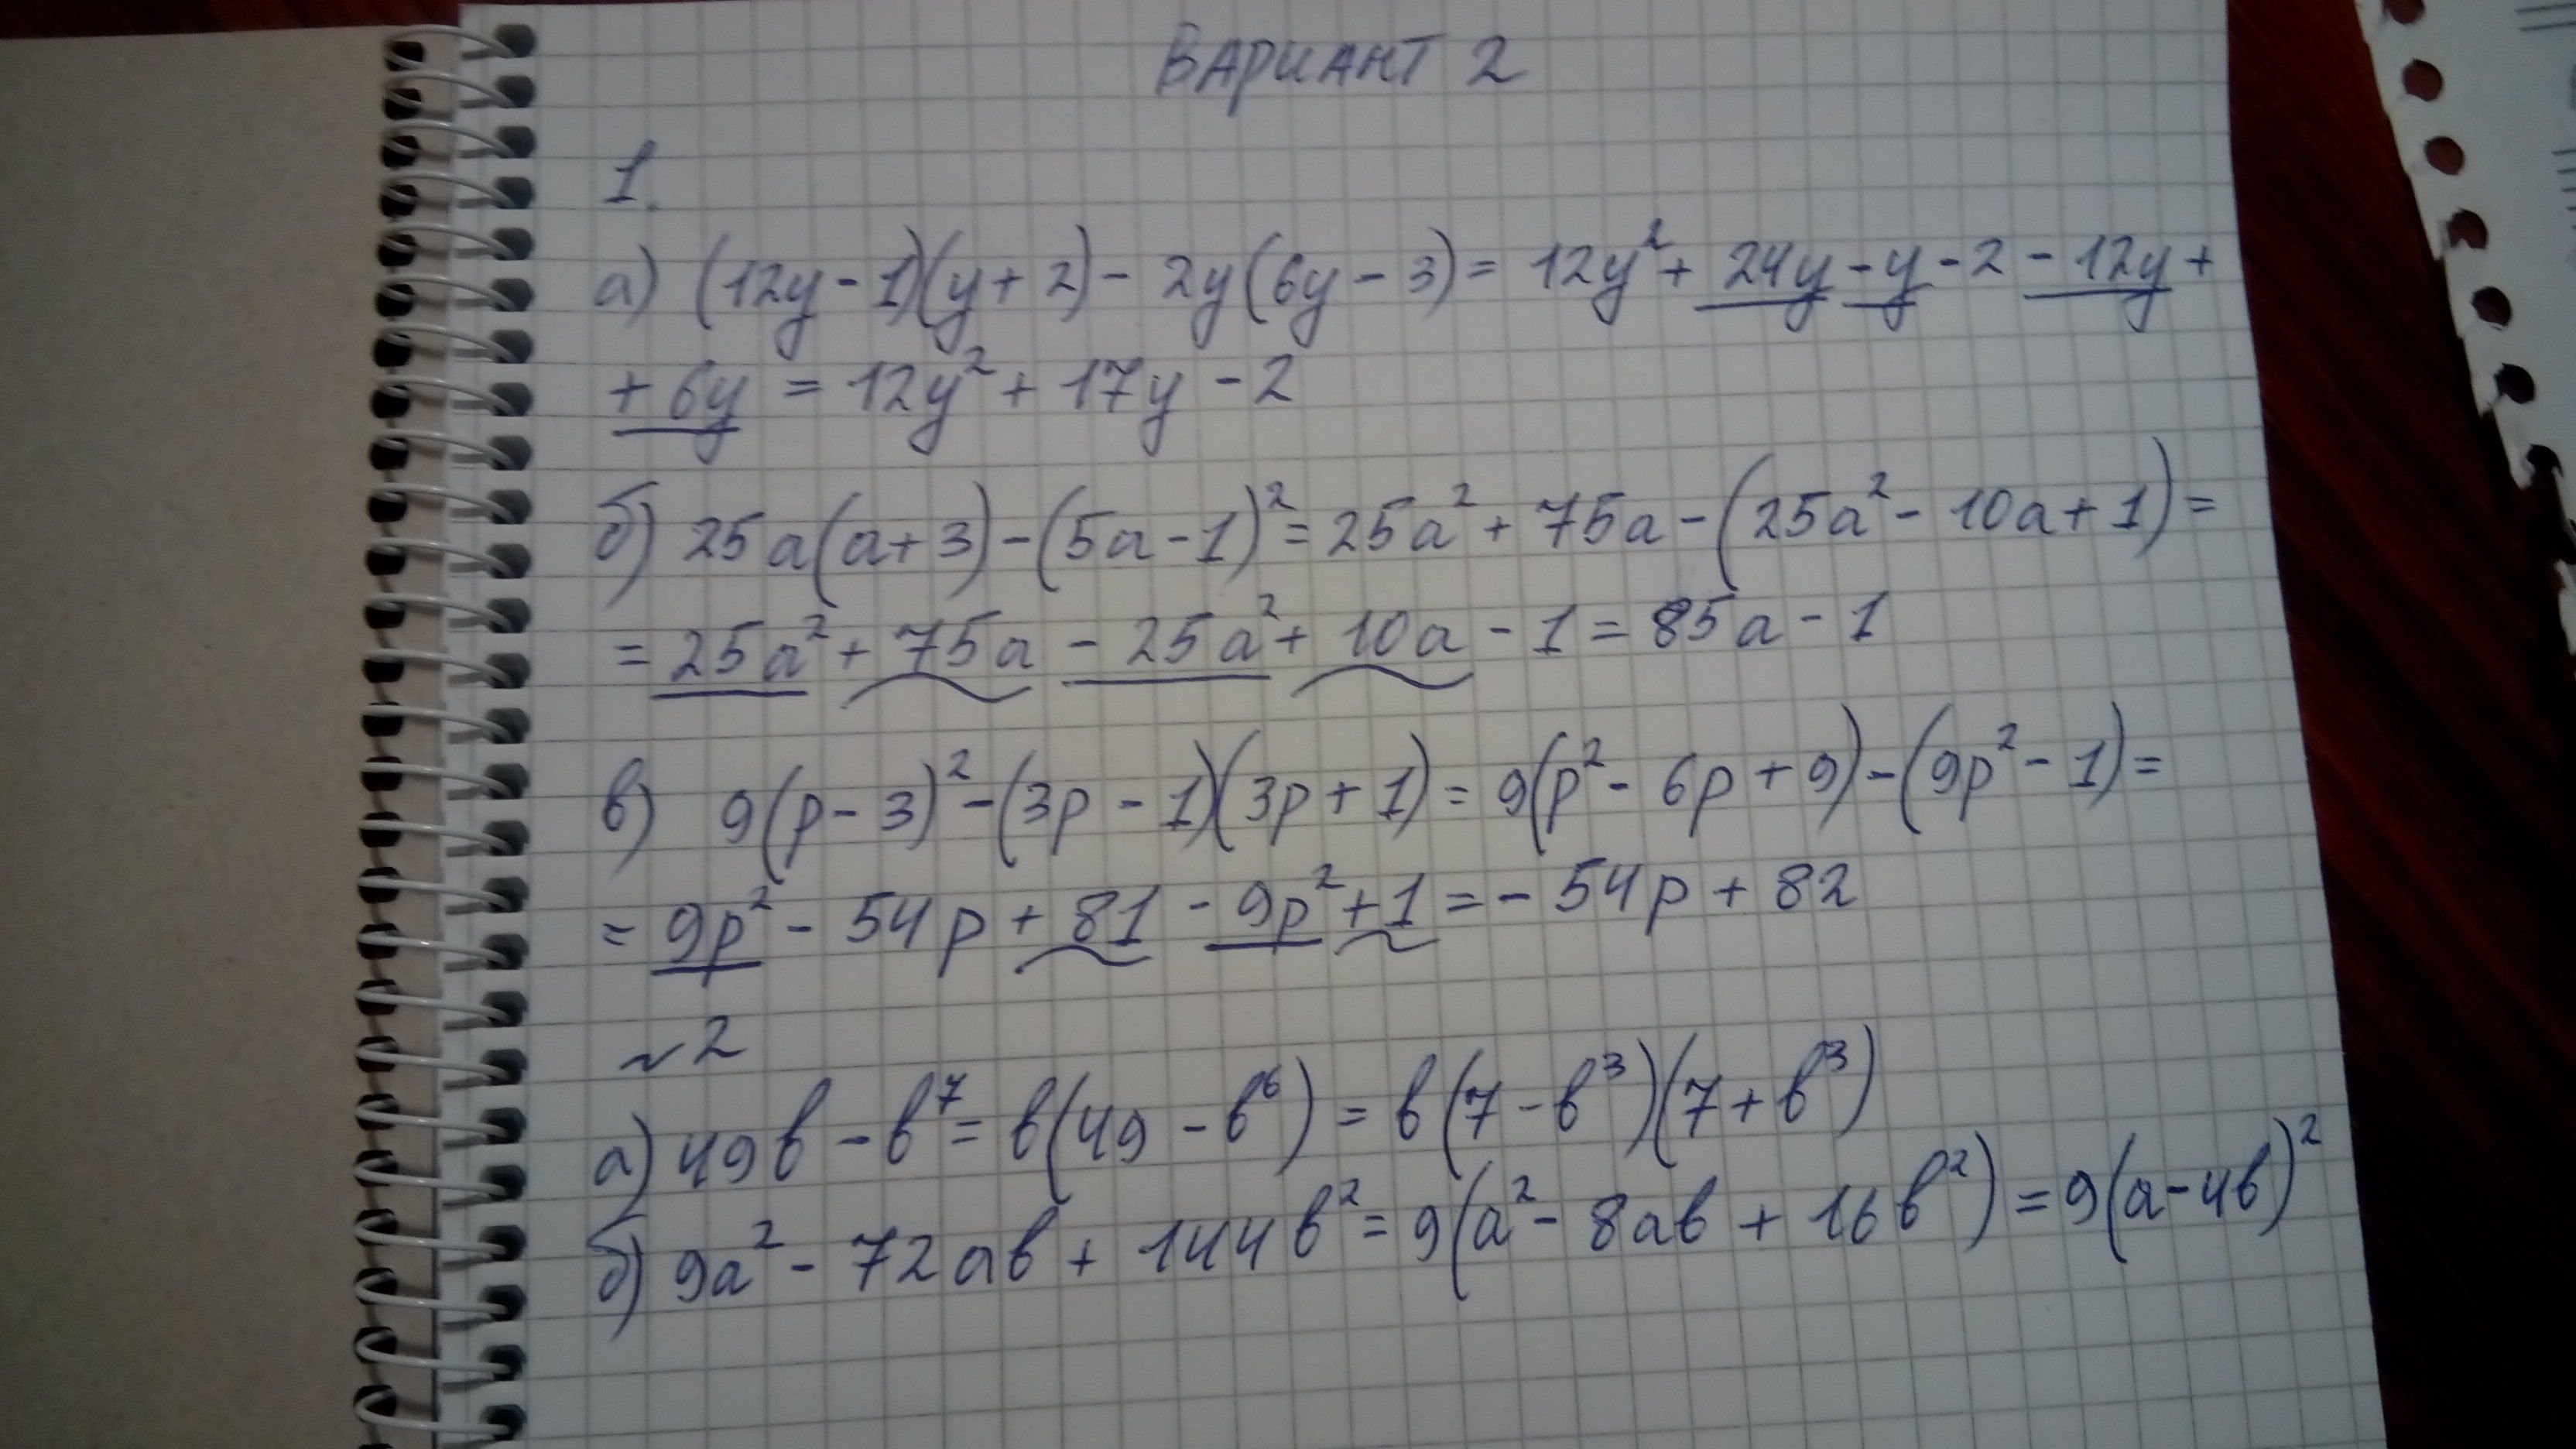 ВАРИАНТ 2
1.
а) (12y - 1)(y + 2) - 2y(6y - 3) = 12y² + 24y - y - 2 - 12y +
+ 6y = 12y² + 17y - 2
б) 25a(a + 3) - (5a - 1)² = 25a² + 75a - (25a² - 10a + 1) =
= 25a² + 75a - 25a² + 10a - 1 = 85a - 1
в) 9(p - 3)² - (3p - 1)(3p + 1) = 9(p² - 6p + 9) - (9p² - 1) =
= 9p² - 54p + 81 - 9p² + 1 = - 54p + 82
~2
а) 49b - b⁷ = b(49 - b⁶) = b(7 - b³)(7 + b³)
б) 9a² - 72ab + 144b² = 9(a² - 8ab + 16b²) = 9(a - 4b)²